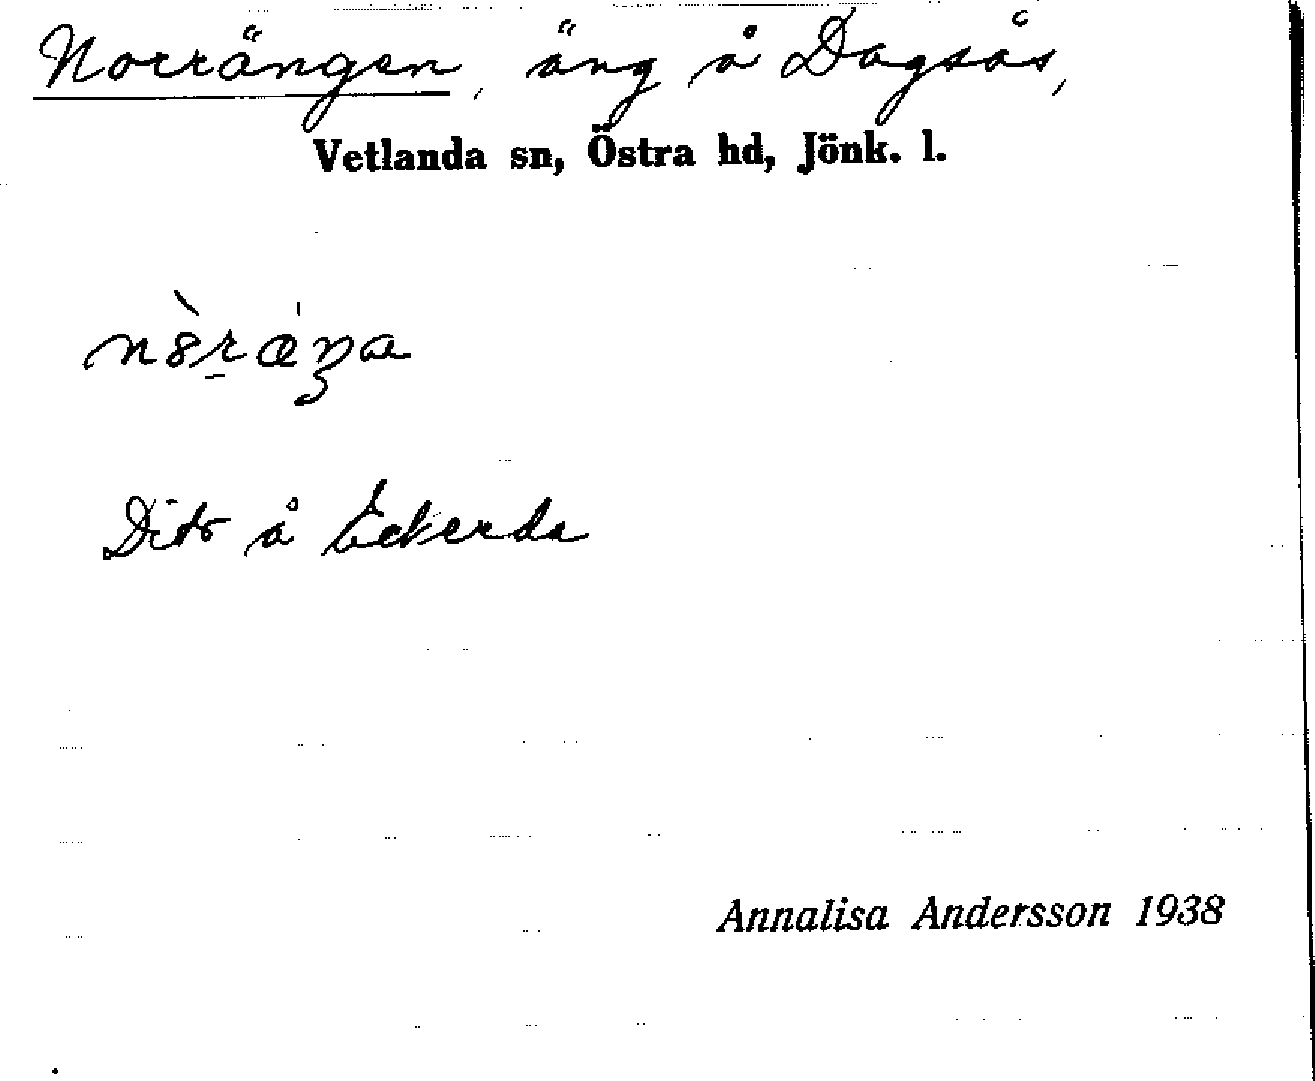 Norrängen, äng å Dagsås,
Vetlanda sn, Östra hd, Jönk. l.
Dito å Eckerda
Annalisa Andersson 1938